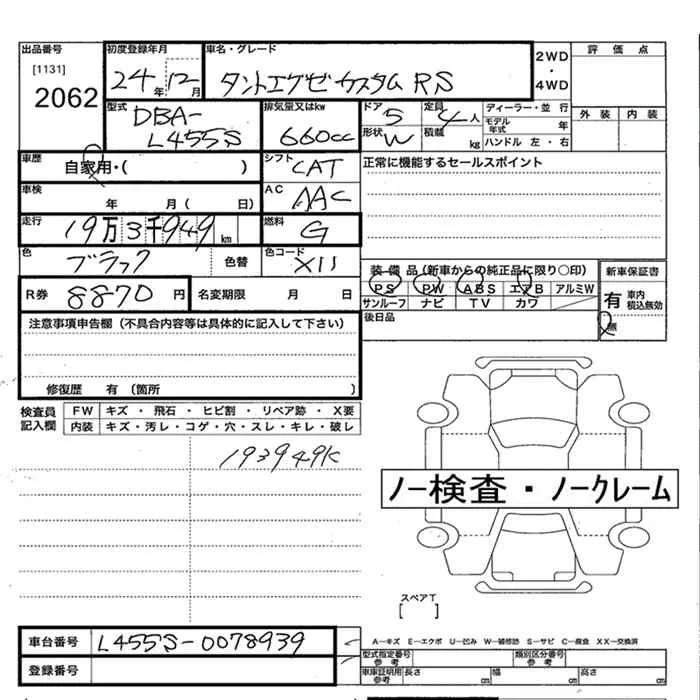 出品番号 初度登録年月 車名・グレード 2WD・4WD 評価点
[1131] 2062 24年12月 タントエグゼカスタム RS
型式 DBA-L455S 排気量又はkw 660cc ドア 5 定員 4人 ディーラー・並行 外装 内装
形状 W 積載 kg モデル年式 年 ハンドル 左・右
車歴 自家用・( ) シフト CAT 正常に機能するセールスポイント
車検 年 月( 日) AC AAC
走行 19万3千949km 燃料 G
色 ブラック 色替 色コード X11 装備品(新車からの純正品に限り○印) 新車保証書
R券 8870円 名変期限 月 日 PS PW ABS エアB アルミW 有 車内積込無効
サンルーフ ナビ TV カワ 無
注意事項申告欄(不具合内容等は具体的に記入して下さい) 後日品
修復歴 有(箇所 )
検査員記入欄 FW キズ・飛石・ヒビ割・リペア跡・X要
内装 キズ・汚レ・コゲ・穴・スレ・キレ・破レ
193949K
ノー検査・ノークレーム
スペアT
[ ]
車台番号 L455S-0078939 A―キズ E―エクボ U―凹み W―補修跡 S―サビ C―腐食 XX―交換済
登録番号 型式指定番号 参考 類別区分番号 参考
車庫証明用 参考 長さ cm 幅 cm 高さ cm